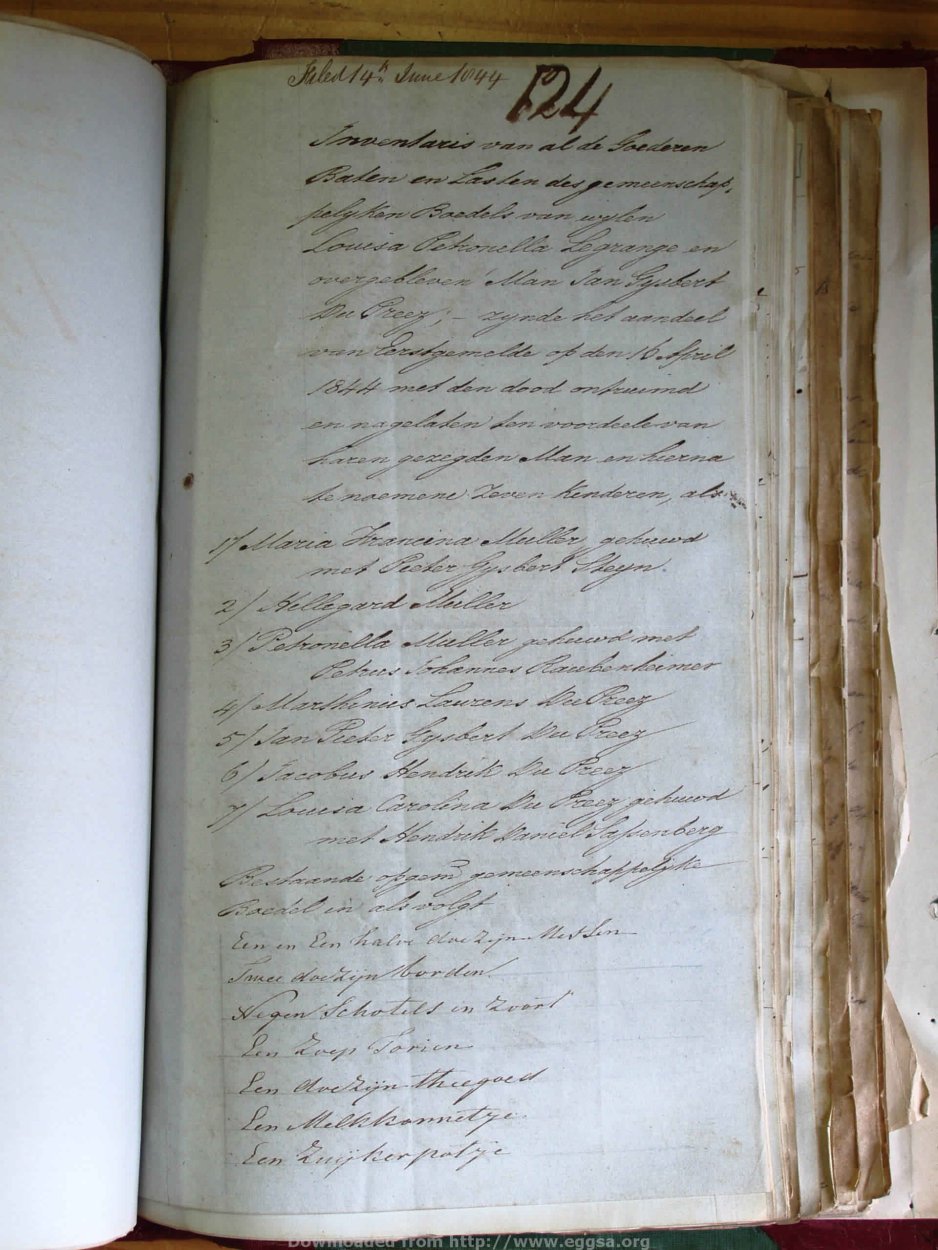 Filed 14th June 1844
124
Inventaris van al de Goederen
Baten en Lasten des gemeenschap,
pelyken Boedels van wylen
Louisa Petronella Legrange en
overgebleven Man Jan Gysbert
Du Preez; – zynde het aandeel
van Eerstgemelde op den 16 April
1844 met den dood ontruimd
en nagelaten ten voordeele van
haren gezegden Man en hierna
te noemene Zeven Kinderen, als
1/ Maria Francina Muller gehuwd
met Pieter Gysbert Steyn.
2/ Hillegard Muller
3/ Petronella Muller gehuwd met
Petrus Johannes Raubenheimer
4/ Marthinus Laurens Du Preez
5/ Jan Pieter Gysbert Du Preez
6/ Jacobus Hendrik Du Preez
7/ Louisa Carolina Du Preez gehuwd
met Hendrik Daniel
Bestaande opgemd gemeenschappelyke
Boedel in als volgt
Een en Een halve doezijn Messen
Twee doezijn borden
Negen Schotels in Zoort
Een Zoep
Een doezijn theegoed
Een Melkkannetje
Een Zuijkerpotje
Downloaded from http://www.eggsa.org